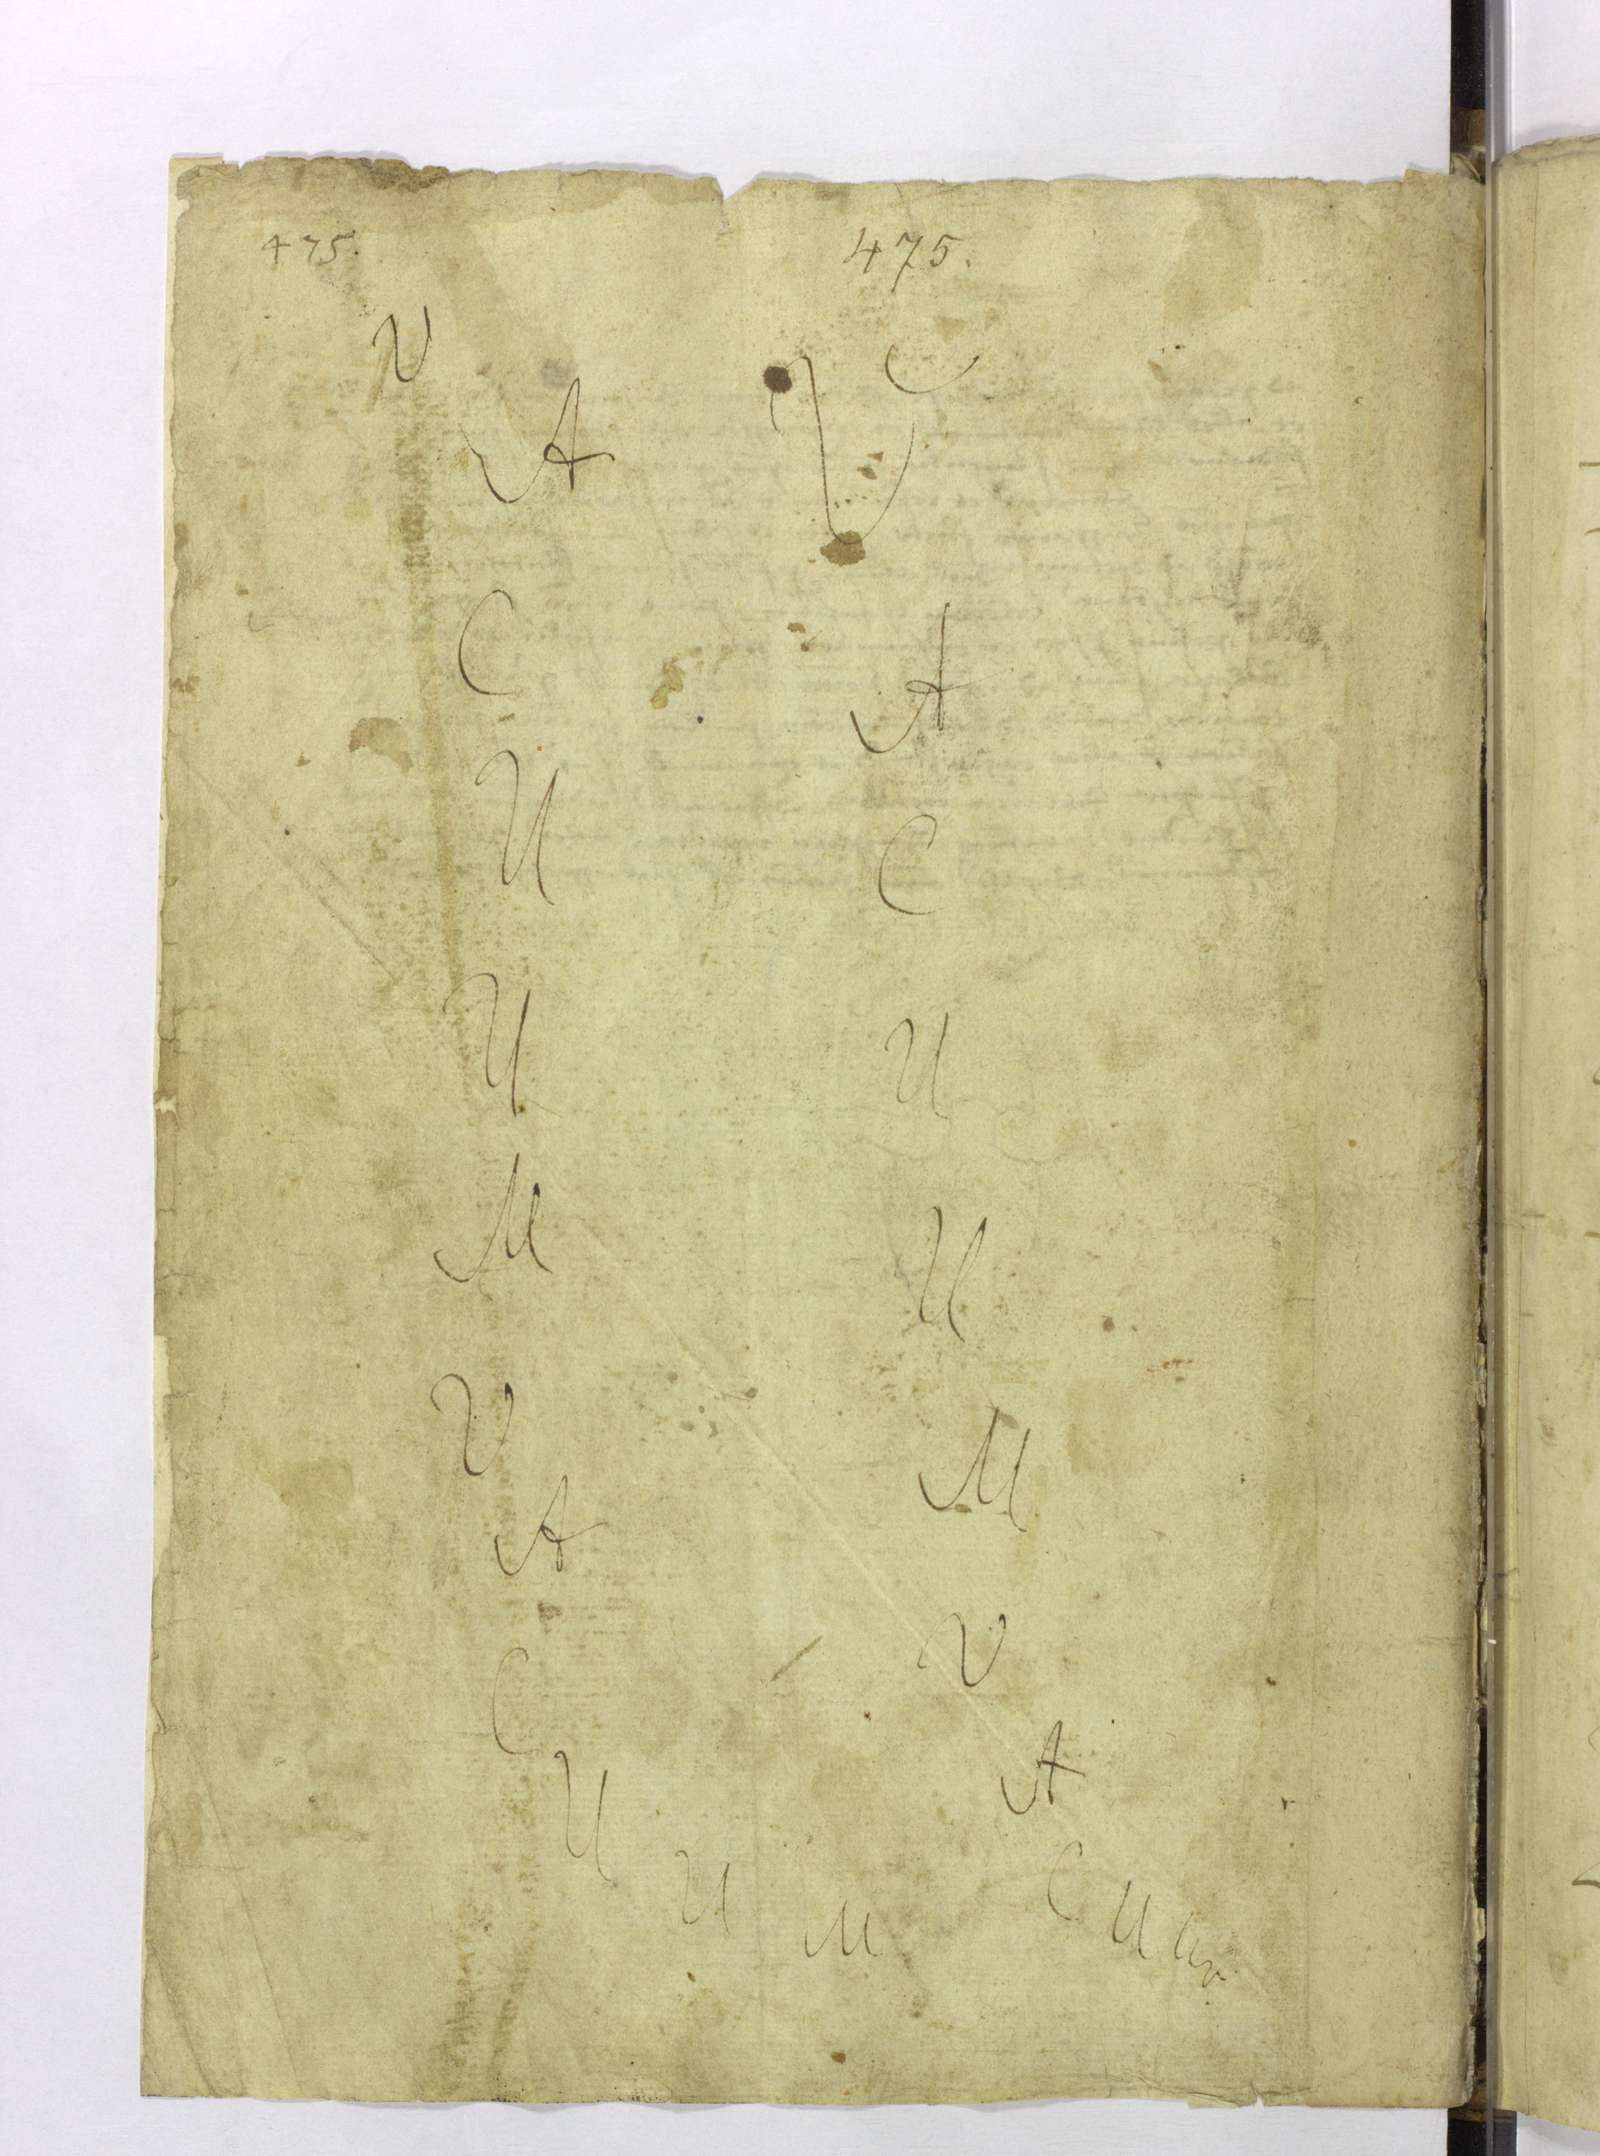 475. 475.
V
A
C
U
U
M
V
A
C
U
U
M
V
A
C
U
U
M
V
A
C
U
um